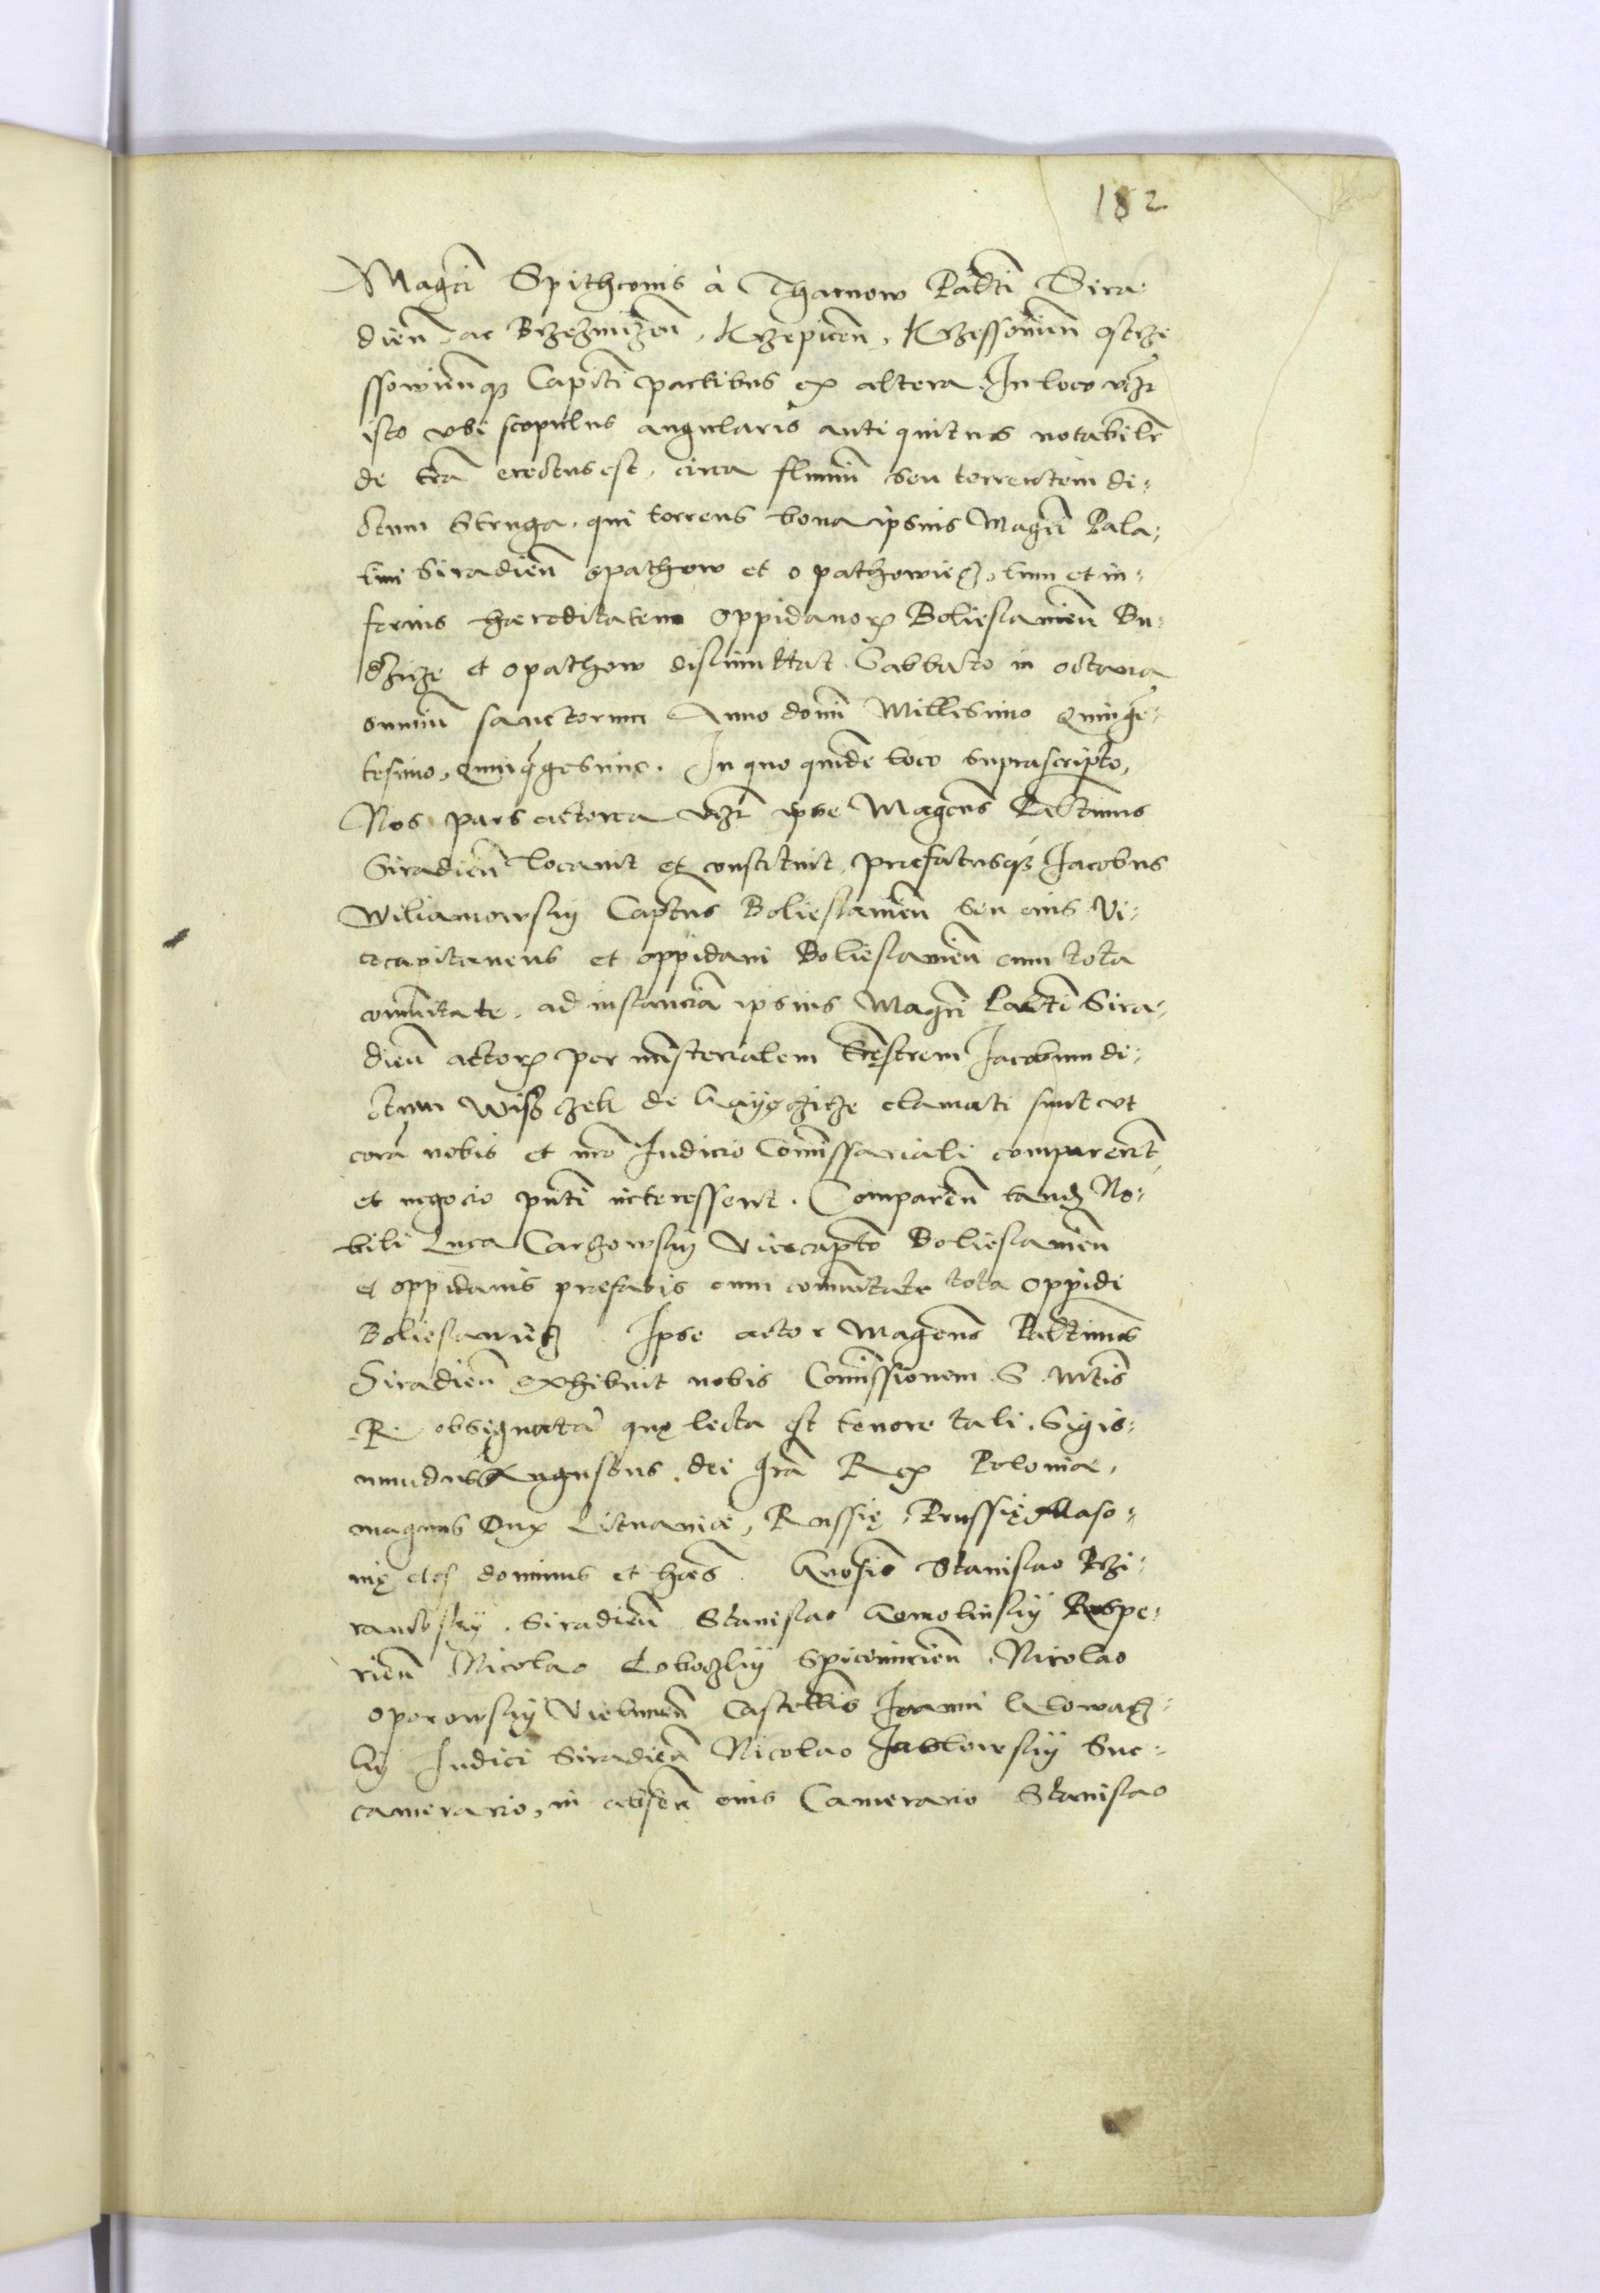 182
Magci Spithconis à Tharnow Paltti Sira:
dien ac Brzeznizen, Krzepicen, Krzessouien Ostrze
ssowienqz Capiti partibus ex altera. In loco vtz
isto vbi scopulus angularis antiquitus notabilr
de tra erectus est, circa flumen seu torrentem di:
ctum Struga, qui torrens bona ipsius Magci Pala:
tini Siradien Opathow et Opathowiecz, tum et in:
ferius haereditatem oppidanorz Boliesłauien Bu:
dzicze et Opathow disliniitat. Sabbato in octaua
omnium sanctorum Anno domini Millesimo Quinge:
tesimo, Quinqgesimo. In quo quide loco suprascripto,
Nos pars actorea vtz ipse Magcus Palatinus
Siradien locauit et constituit, praefatusqz Iacobus
Wiliamowsky Captus Boliesłauien seu eius Vi:
cecapitaneus et oppidani Boliesłauien cum tota
comuitate, ad instancia ipsius Magci Paltti Sira:
dien actorz per misterialem trestrem Iacobum di:
ctum Wiszczek de clamati sunt vt
corã nobis et nro Iudicio Comissariali comparerent
et negocio pnti interessent. Comparen tandz No:
bili Luca Carzowsky Vicecapto Boliesłauien
et oppidanis prefatis cum comuitate tota oppidi
Boliesławiecz Ipse actor Magcus Palatinus
Siradien exhibuit nobis Comissionem S. Mtis
R. obsignatã quę lecta est tenore tali. Sigis:
mundus Augustus, dei gra Rex Poloniae,
magnus Dux Lituaniae, Russię, Prussię, Maso:
uię etc dominus et haes. Gnosis Stanislao
Siradien Stanislao Gomolinsky Rospe:
rien Nicolao Spicimirien, Nicolao
Oporowsky Vielunen Castellis Ioanni
ky Iudici Siradien Nicolao Iablowsky Suc:
camerario, in absen eius Camerario Stanislao